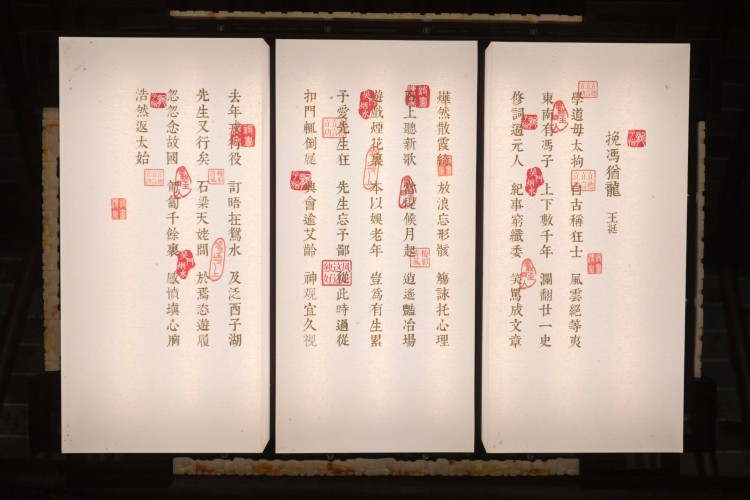 挽馮猶龍
王挺
學道毋太拘 自古稱狂士 風雲絕等夷
東南有馮子 上下數千年 瀾翻廿一史
修詞逼元人 紀事窮纖委 笑罵成文章
燁然散霞綺 放浪忘形骸 觴詠托心理
石上聽新歌 當堤候月起 逍遙豔冶場
遊戲煙花裏 本以娛老年 豈爲有生累
予愛先生狂 先生忘予鄙 從此時過從
扣門輒倒屣 興會逾艾齡 神观宜久视
去年 行役 訂晤在鴛水 及泛西子湖
先生又行矣 石梁天姥間 於焉恣遊履
忽忽念故國 匍匐千餘裏 感憤填心胸
浩然返太始